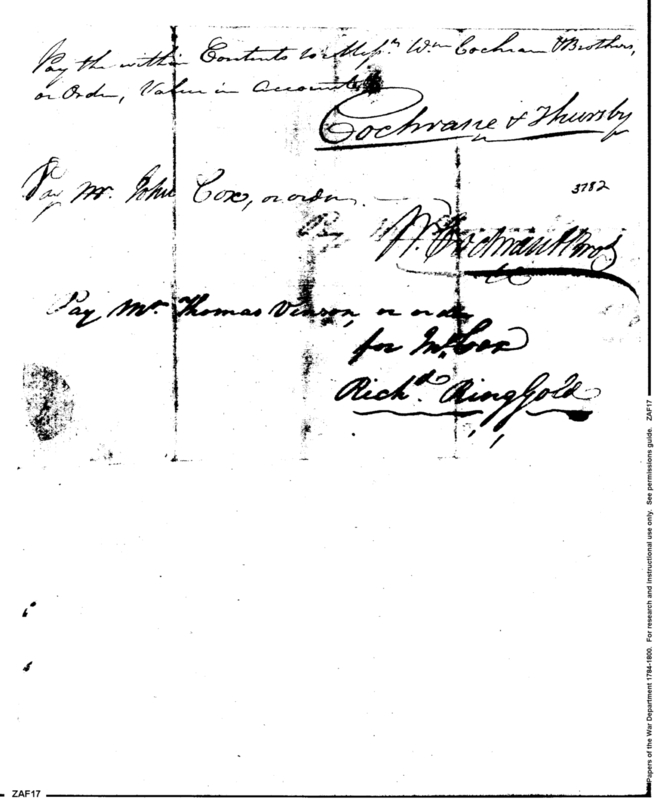 Pay the within Contents to Messrs. Wm Cochran & Brothers,
or Order, Value in Account
Cochrane & Thursby
3782
Pay Mr. John Cox, or order
Wm. Cochran & Bros
Pay Mr. Thomas Vinson, or order
for Mr. Cox
Richd. RingGold
Papers of the War Department 1784-1800. For research and instructional use only. See permissions guide. ZAF17
ZAF17